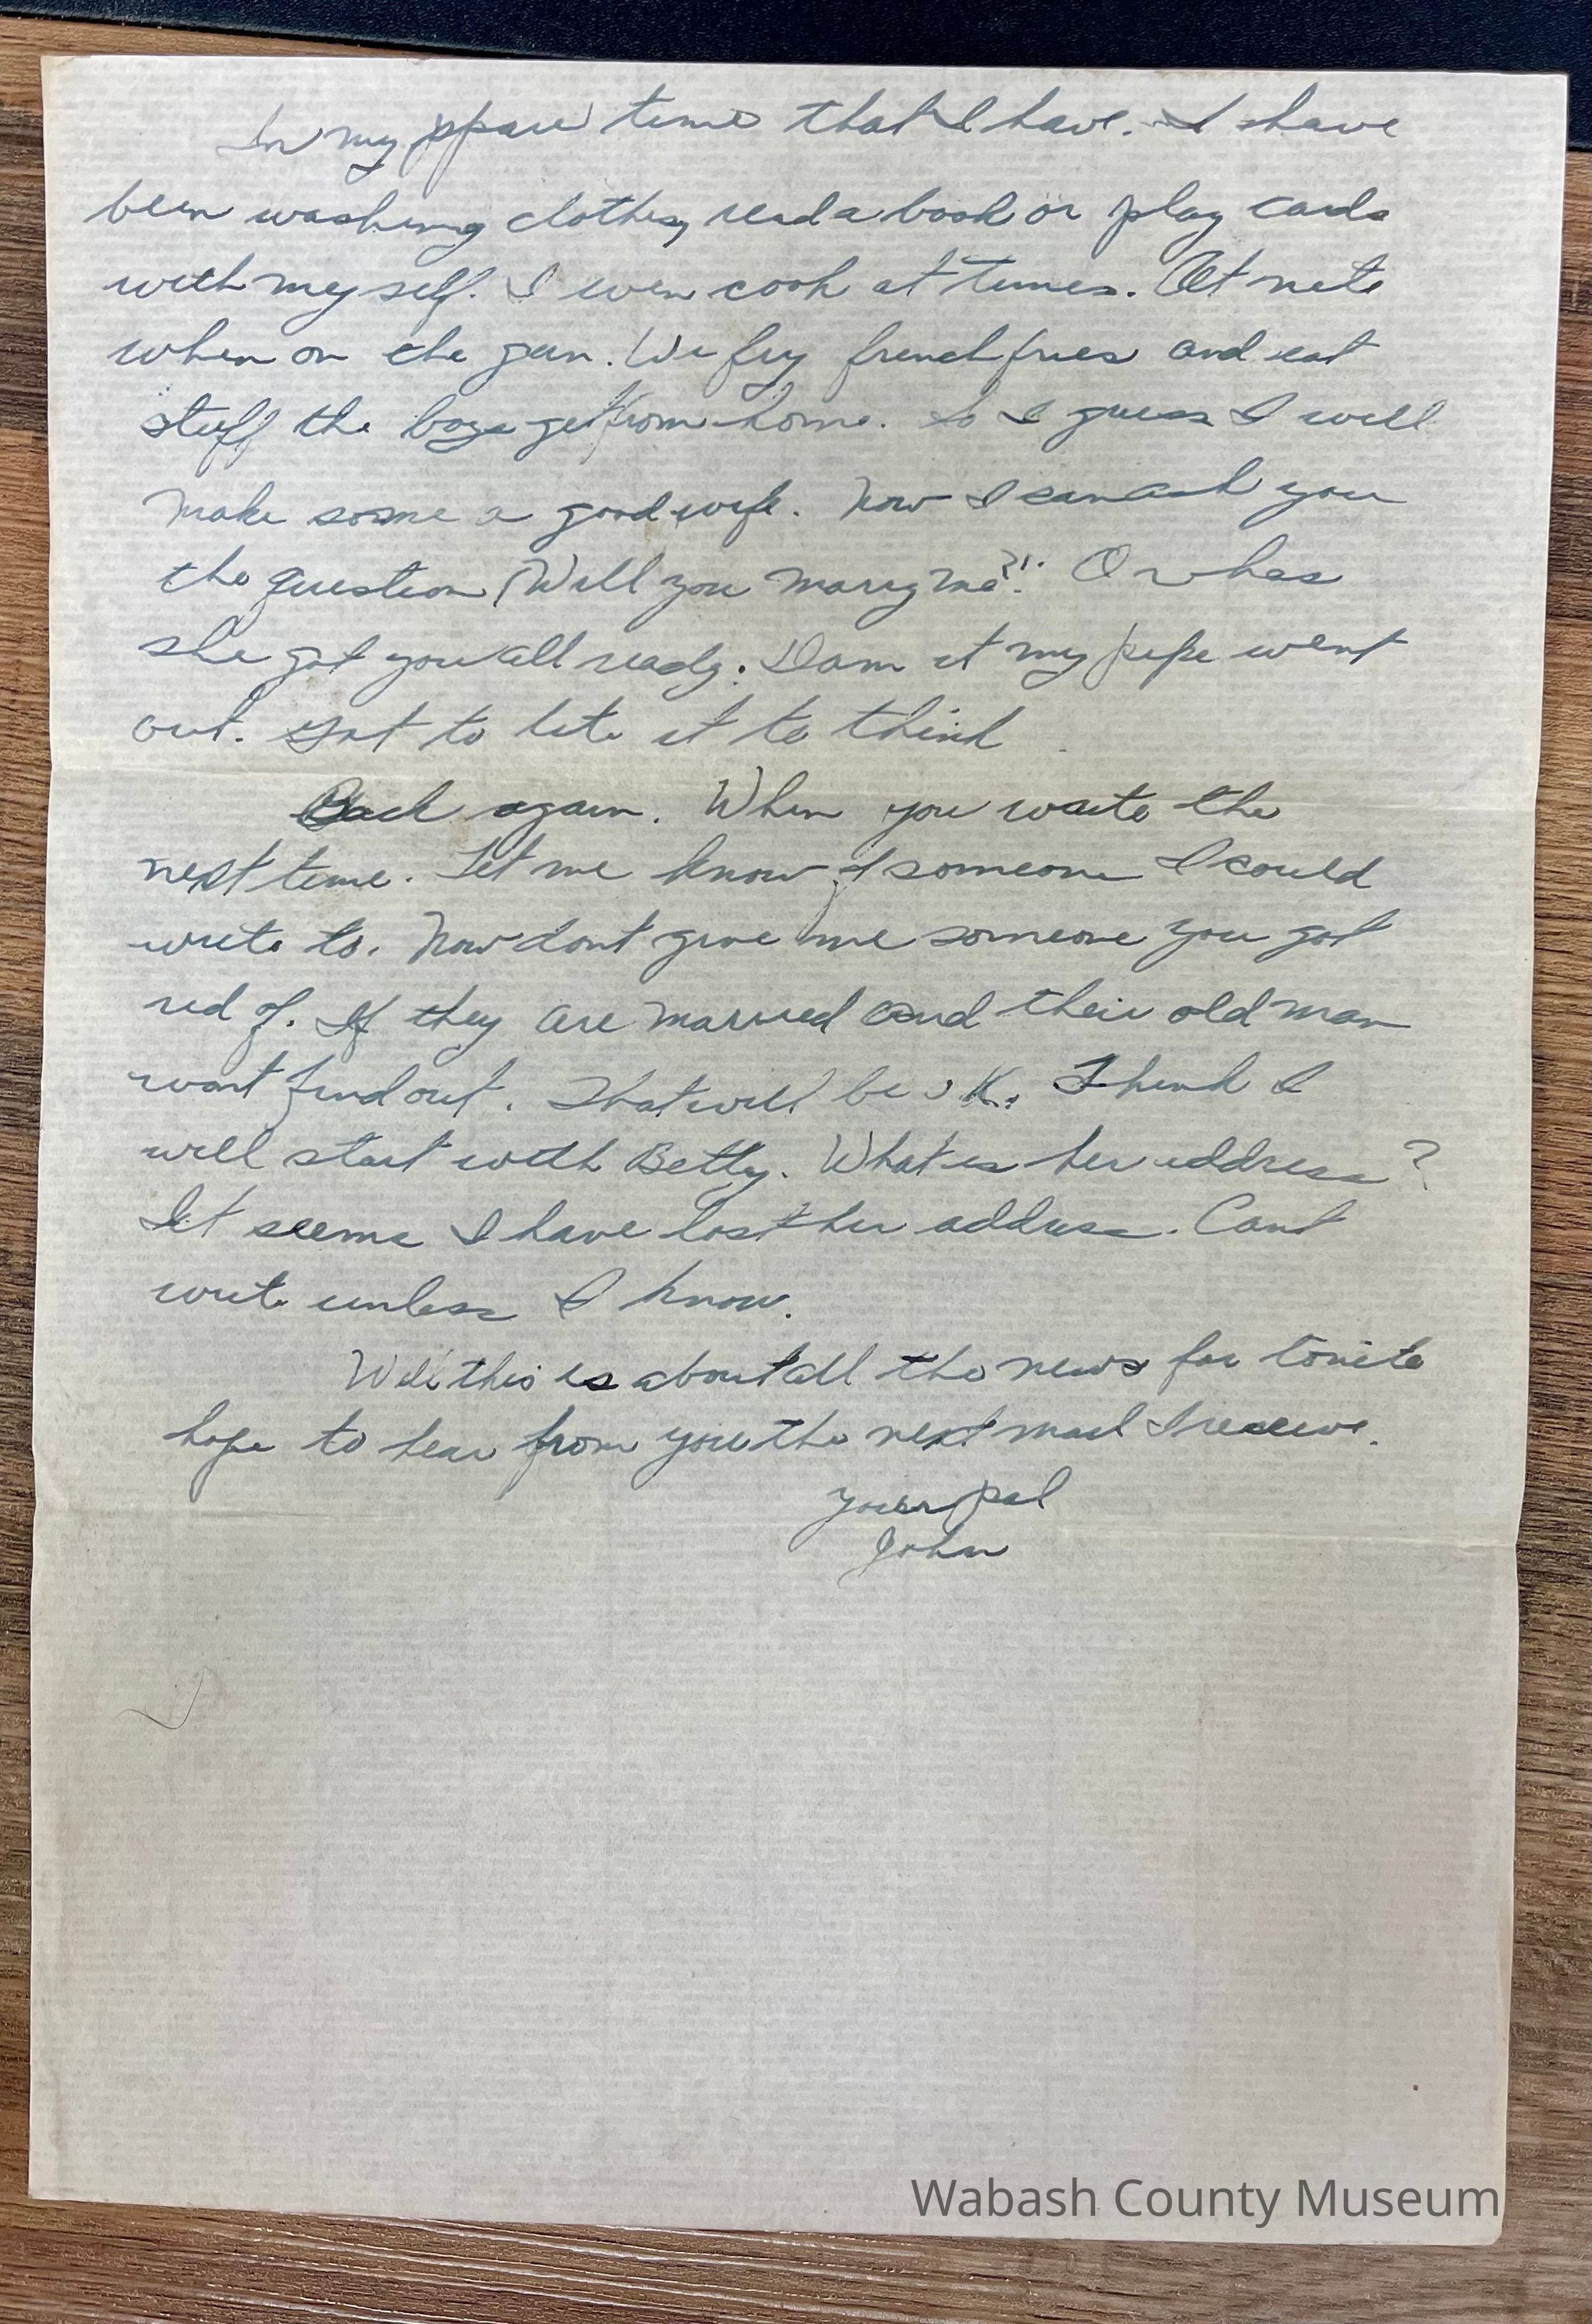 In my spare time that I have. I have
been washing clothes, read a book or play cards
with my self. I even cook at times. At nite
when on the gun. We fry french fries and eat
stuff the boys get from home. So I guess I will
make some a good wife. Now I can ask you
the question "Will you marry me?!" Or has
she got you all ready. Dam it my pipe went
out. Got to lite it to think
Back again. When you write the
next time. Let me know of someone I could
write to. Now dont give me someone you got
rid of. If they are married and their old man
wont find out. That will be OK. Think I
will start with Betty. What is her address?
It seems I have lost her address. Cant
write unless I know.
Well this is about all the news for tonite
hope to hear from you the next mail I receive.
Your pal
John
Wabash County Museum